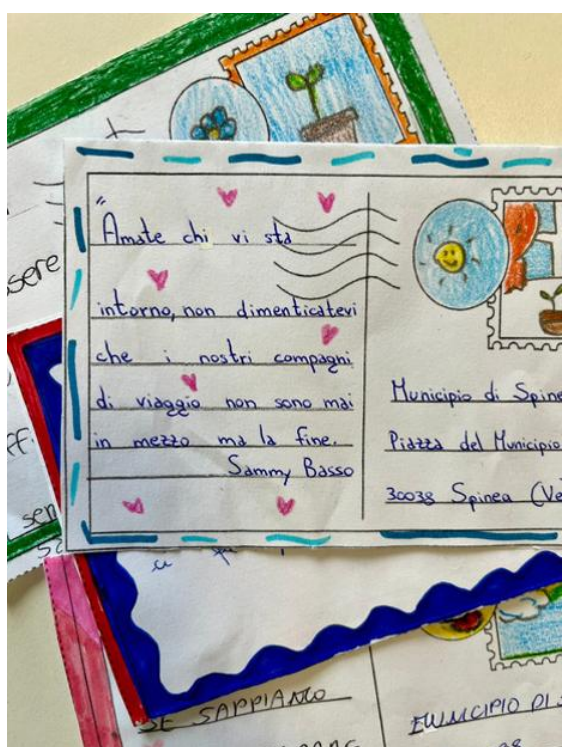 sere
"Amate chi vi sta
intorno, non dimenticatevi
che i nostri compagni
di viaggio non sono mai
in mezzo ma la fine.
Sammy Basso
Municipio di Spine
Piazza del Municipio
30038 Spinea (Ve
ff.
sen
SE SAPPIAMO
MUNICIPIO DI